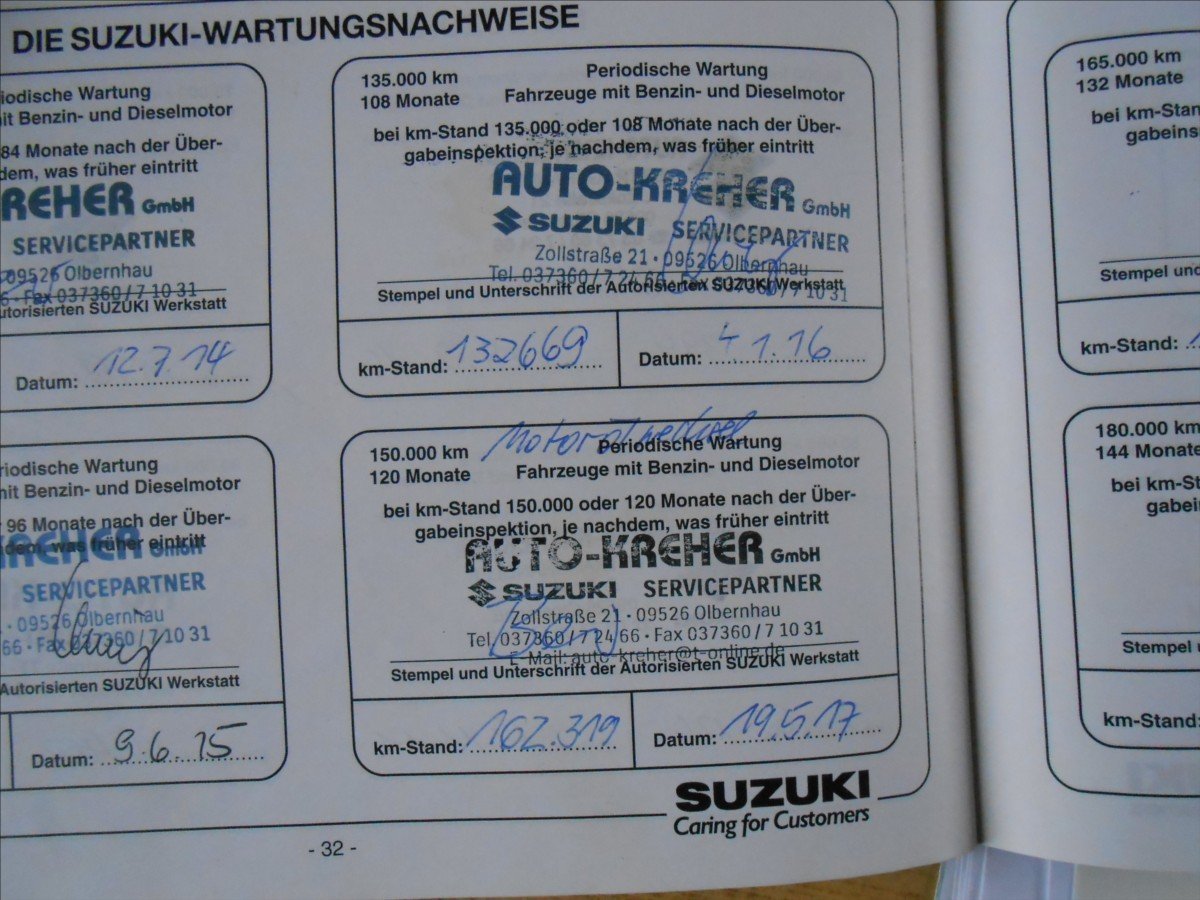 DIE SUZUKI-WARTUNGSNACHWEISE
iodische Wartung
it Benzin- und Dieselmotor
84 Monate nach der Über-
dem, was früher eintritt
REHER GmbH
SERVICEPARTNER
09526 Olbernhau
6 · Fax 037360 / 7 10 31
utorisierten SUZUKI Werkstatt
Datum: 12.7.14
135.000 km
108 Monate
Periodische Wartung
Fahrzeuge mit Benzin- und Dieselmotor
bei km-Stand 135.000 oder 108 Monate nach der Über-
gabeinspektion, je nachdem, was früher eintritt
AUTO-KREHER GmbH
SUZUKI SERVICEPARTNER
Zollstraße 21 · 09526 Olbernhau
Tel. 037360 / 7 24 66 · Fax 037360 / 7 10 31
Stempel und Unterschrift der Autorisierten SUZUKI Werkstatt
km-Stand: 132669
Datum: 4.1.16
riodische Wartung
mit Benzin- und Dieselmotor
r 96 Monate nach der Über-
hdem, was früher eintritt
KREHER GmbH
SERVICEPARTNER
· 09526 Olbernhau
66 · Fax 037360 / 7 10 31
Autorisierten SUZUKI Werkstatt
Datum: 9.6.15
150.000 km
120 Monate
Motorölwechsel
Periodische Wartung
Fahrzeuge mit Benzin- und Dieselmotor
bei km-Stand 150.000 oder 120 Monate nach der Über-
gabeinspektion, je nachdem, was früher eintritt
AUTO-KREHER GmbH
SUZUKI SERVICEPARTNER
Zollstraße 21 · 09526 Olbernhau
Tel. 037360 / 7 24 66 · Fax 037360 / 7 10 31
E-Mail: auto-kreher@t-online.de
Stempel und Unterschrift der Autorisierten SUZUKI Werkstatt
km-Stand: 162.319
Datum: 19.5.17
SUZUKI
Caring for Customers
- 32 -
165.000 km
132 Monate
bei km-Stan
gabeinsp
Stempel und
km-Stand:
180.000 km
144 Monate
bei km-St
gabei
Stempel u
km-Stand: